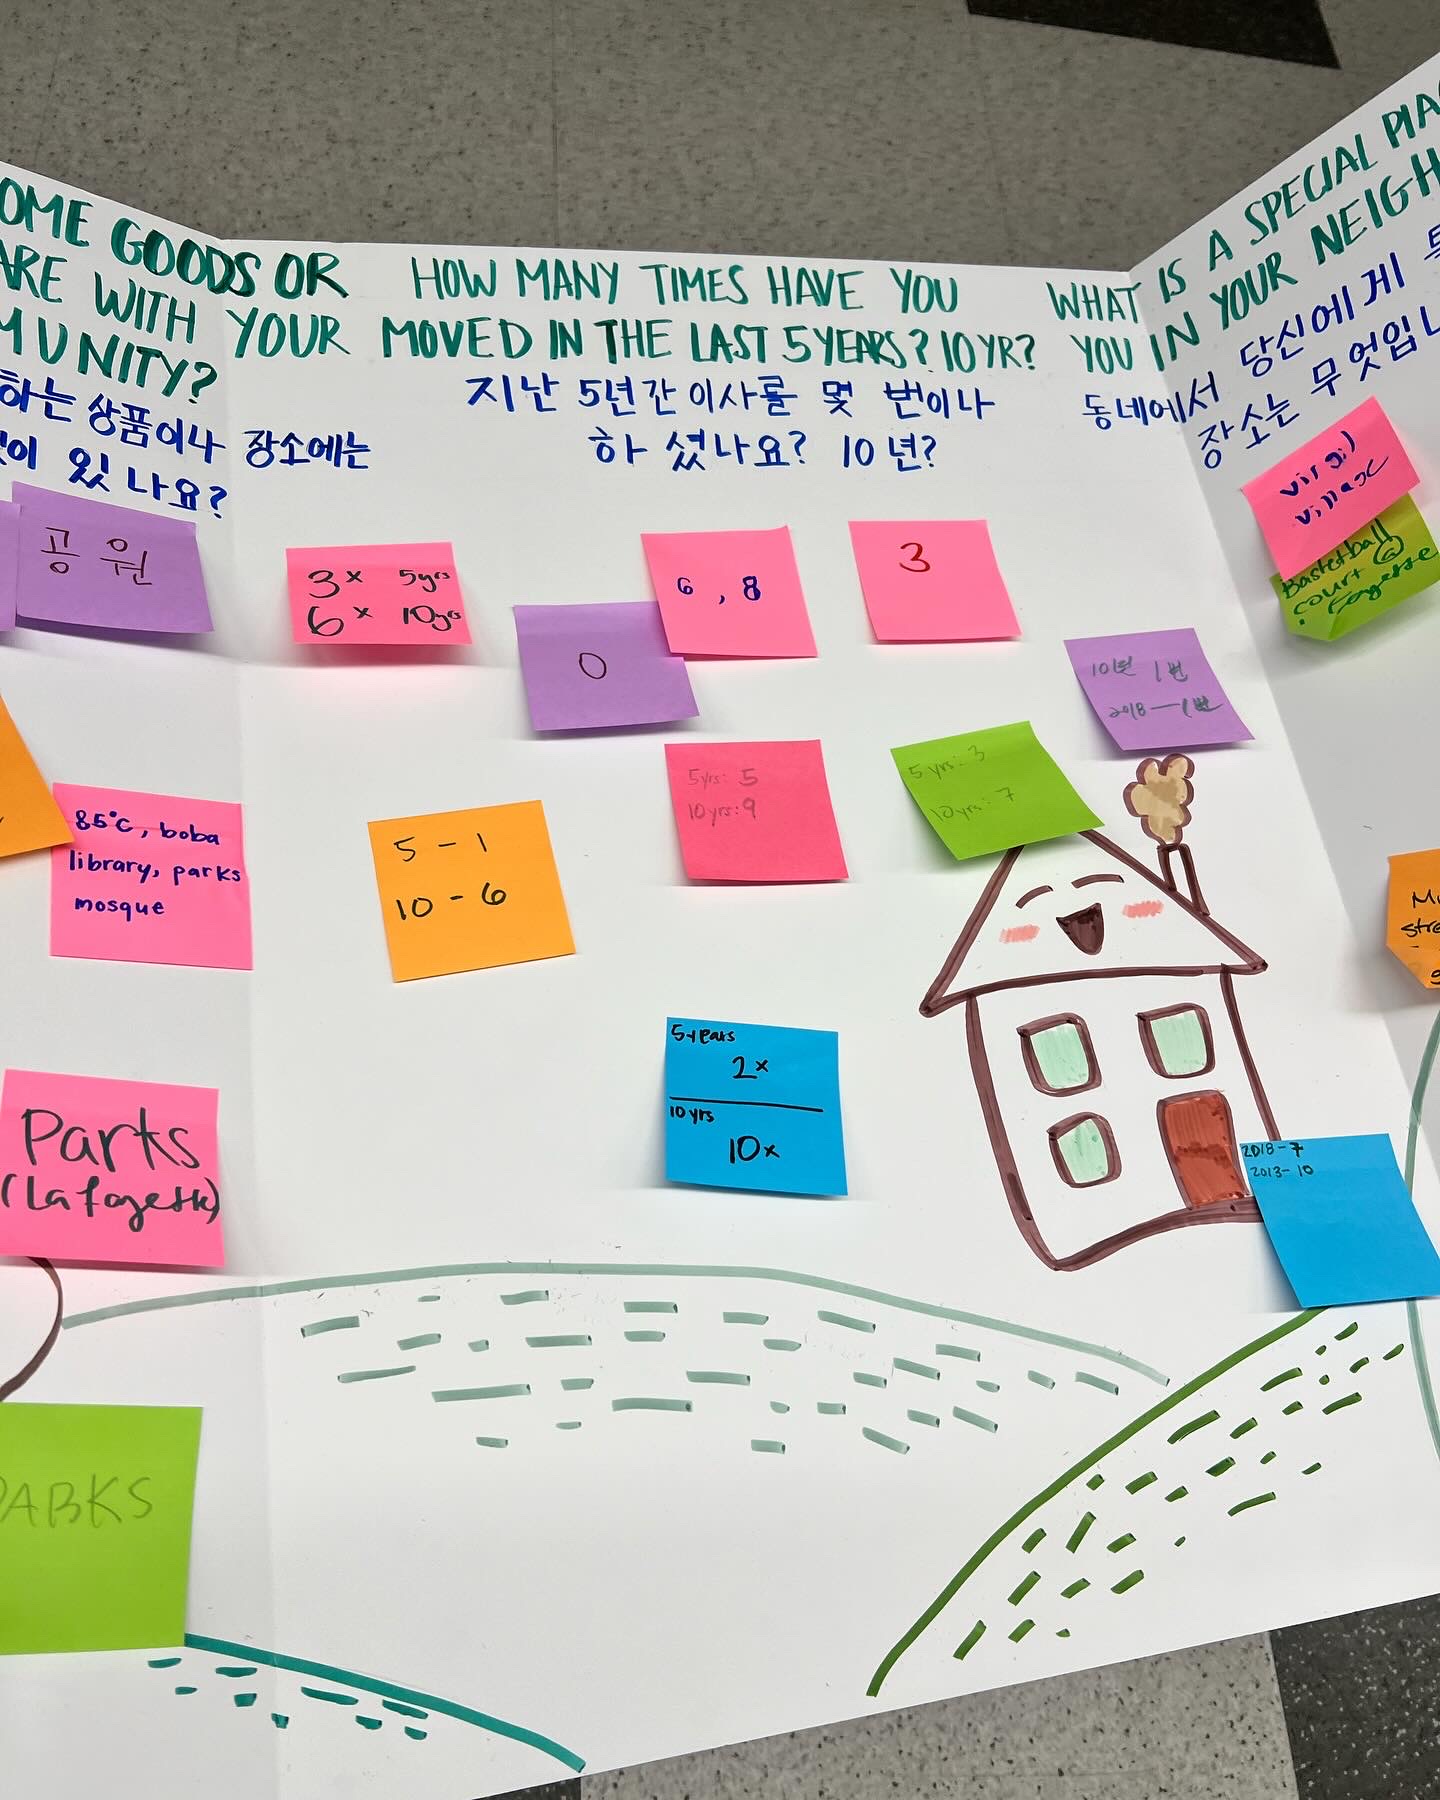 OME GOODS OR
ARE WITH YOUR
MUNITY?
하는 상품이나 장소에는
이 있나요?
공원
85°C, boba
library, parks
mosque
Parks
(Lafayette)
PARKS
HOW MANY TIMES HAVE YOU
MOVED IN THE LAST 5 YEARS? 10 YR?
지난 5년간 이사를 몇 번이나
하 셨나요? 10년?
3x 5yrs
6x 10yrs
0
6, 8
3
10년 1번
2018—1번
5yrs: 5
10yrs: 9
5 yrs: 3
10yrs: 7
5 - 1
10 - 6
5 years
2x
10 yrs
10x
2018-7
2013-10
WHAT IS A SPECIAL PLA
YOU IN YOUR NEIGH
동네에서 당신에게
장소는 무엇입니
virgil
village
Basketball
court @
Lafayette